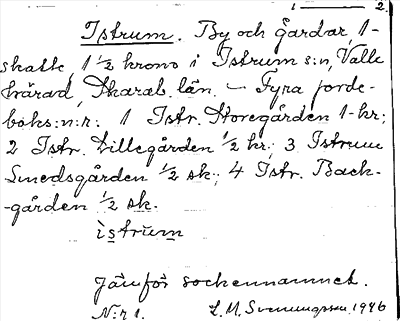 1 ——— 2.
Istrum. By och gårdar, 1-
skatte, 1 1/2 krono i Istrum s:n, Valle
härad, Skarab. län. – Fyra jorde-
boks:n:r: 1 Istr. Storegården 1-kr;
2 Istr. Lillegården 1/2 kr; 3 Istrum
Smedsgården 1/2 sk; 4 Istr. Back-
-gården 1/2 sk.
ìstrum
Jämför sockennamnet.
N:r 1. L. M. Svenungsson. 1946